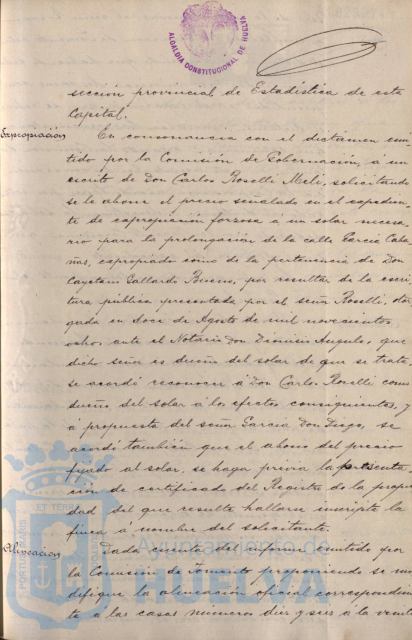 ALCALDÍA CONSTITUCIONAL DE HUELVA
sección provincial de Estadística de esta
Capital.
Expropiación
En consonancia con el dictamen emi-
tido por la Comisión de Gobernación, á un
escrito de Don Carlos Roselli Meli, solicitando
se le abone el precio señalado en el expedien-
te de expropiación forzosa á un solar necesa-
rio para la prolongación de la calle García Caba-
ñas, expropiado como de la pertenencia de Don
Cayetano Gallardo Bueno, por resultar de la escri-
tura pública presentada por el señor Roselli, otor-
gada en doce de Agosto de mil novecientos
ocho, ante el Notario Don Dionisio Angulo, que
dicho señor es dueño del solar de que se trata,
se acordó reconocer á Don Carlos Roselli como
dueño del solar á los efectos consiguientes, y
a propuesta del señor García Don Diego, se
acordó también que el abono del precio
fijado al solar, se haga previa la presenta-
ción de certificado del Registro de la propie-
dad del que resulte hallarse inscripta la
finca á nombre del solicitante.
Alineación
Dada cuenta del informe emitido por
la Comisión de Fomento proponiendo se mo-
difique la alineación oficial correspondien-
te a las casas números diez y seis á la veinte
PORTUS MARIS ET TERRAE
Ayuntamiento de
HUELVA